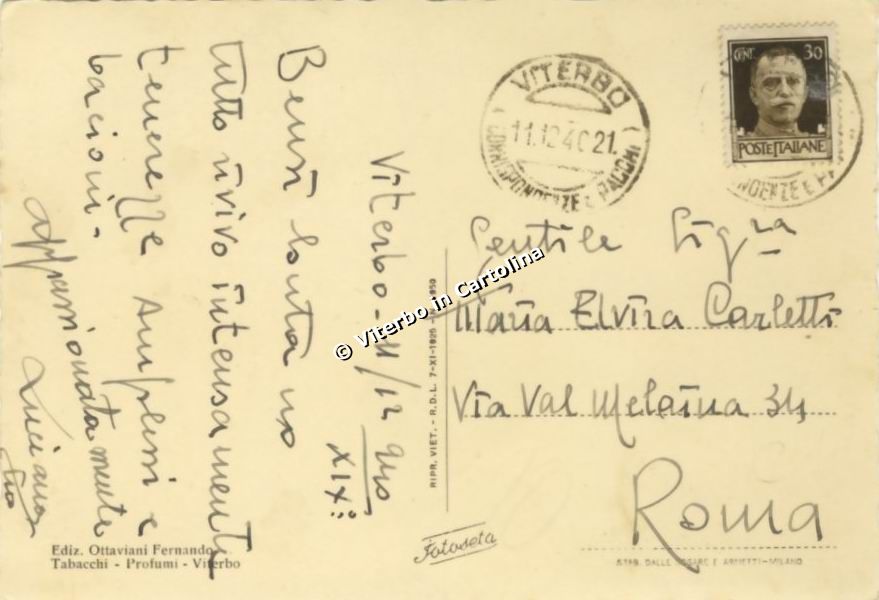 VITERBO
11.12.40 21.
CORRISPONDENZE E PACCHI
CENT. 30
POSTE ITALIANE
NDENZE E P
Viterbo - 11/12 940
XIX:
tutto vivo intensamente
tenerezze amplessi e
bacioni -
appassionatamente
Luciano
tuo
Gentile Sigra
Maria Elvira Carletti
Via Val Melaina 34
Roma
© Viterbo in Cartolina
RIPR. VIET. - R.D.L. 7-XI-1925 - N. 1950
Fotoseta
Ediz. Ottaviani Fernando
Tabacchi - Profumi - Viterbo
STAB. DALLE NOGARE E ARMETTI - MILANO